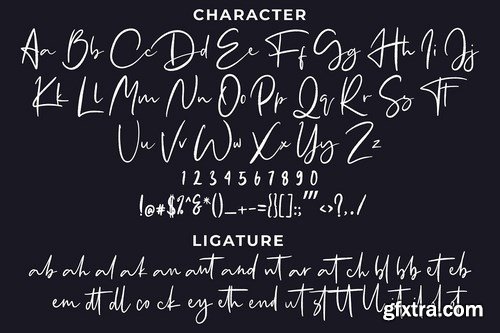 CHARACTER
Aa Bb Cc Dd Ee Ff Gg Hh Ii Jj
Kk Ll Mm Nn Oo Pp Qq Rr Ss Tt
Uu Vv Ww Xx Yy Zz
1 2 3 4 5 6 7 8 9 0
!@#$%^&*()_+-={}[]:;'"<>?,./
LIGATURE
ab ah al ak an ant and ut ar at ck bl bb et eb
em dt dl co ck ey eth end ut st tt ll
gfxtra.com